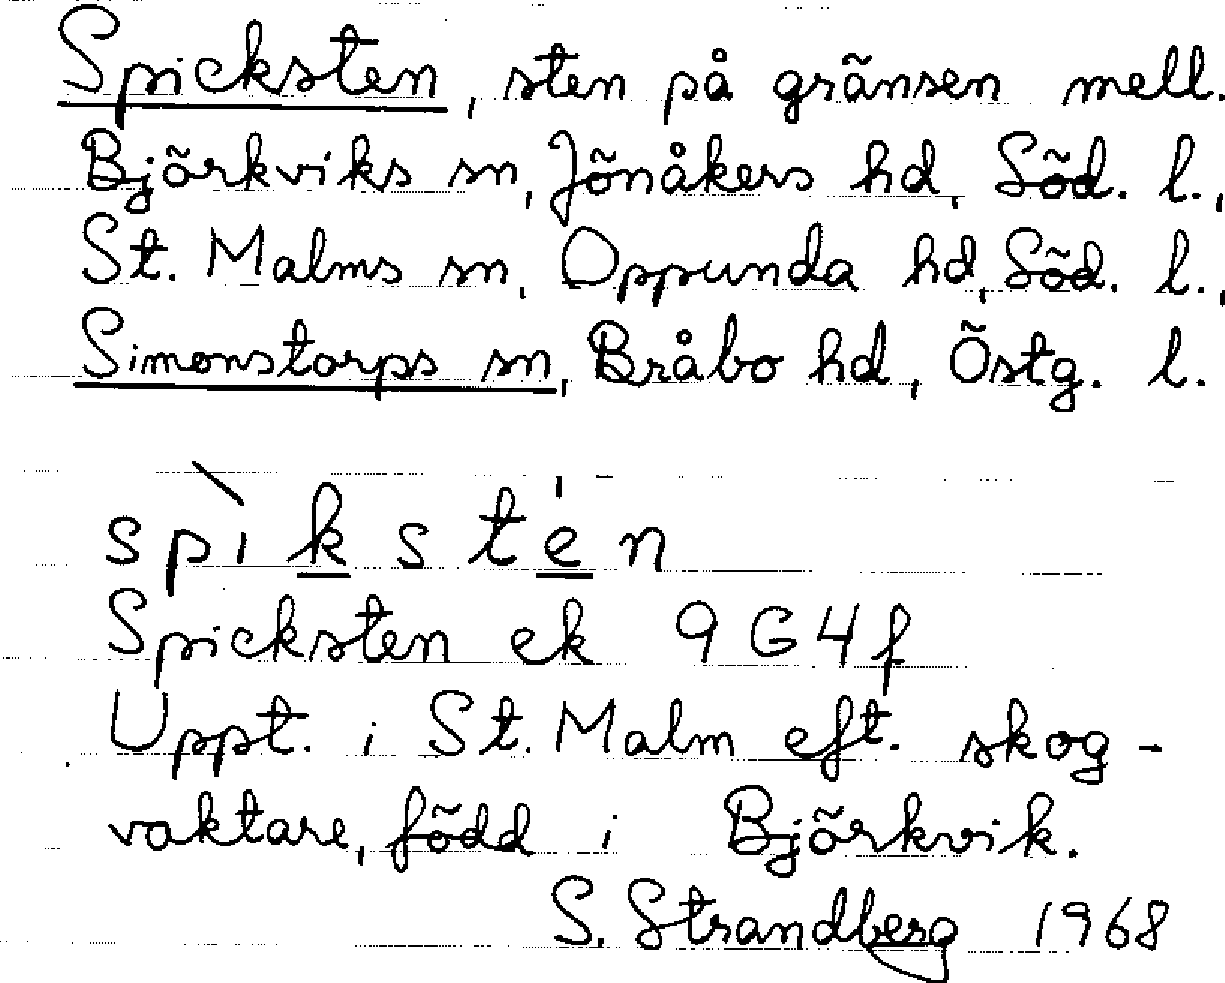 Spicksten, sten på gränsen mell.
Björkviks sn, Jönåkers hd, Söd. l.,
St. Malms sn, Oppunda hd, Söd. l.,
Simonstorps sn, Bråbo hd, Östg. l.
spìkste̍n
Spicksten ek 9G4f
Uppt. i St. Malm eft. skog-
vaktare, född i Björkvik.
S. Strandberg 1968